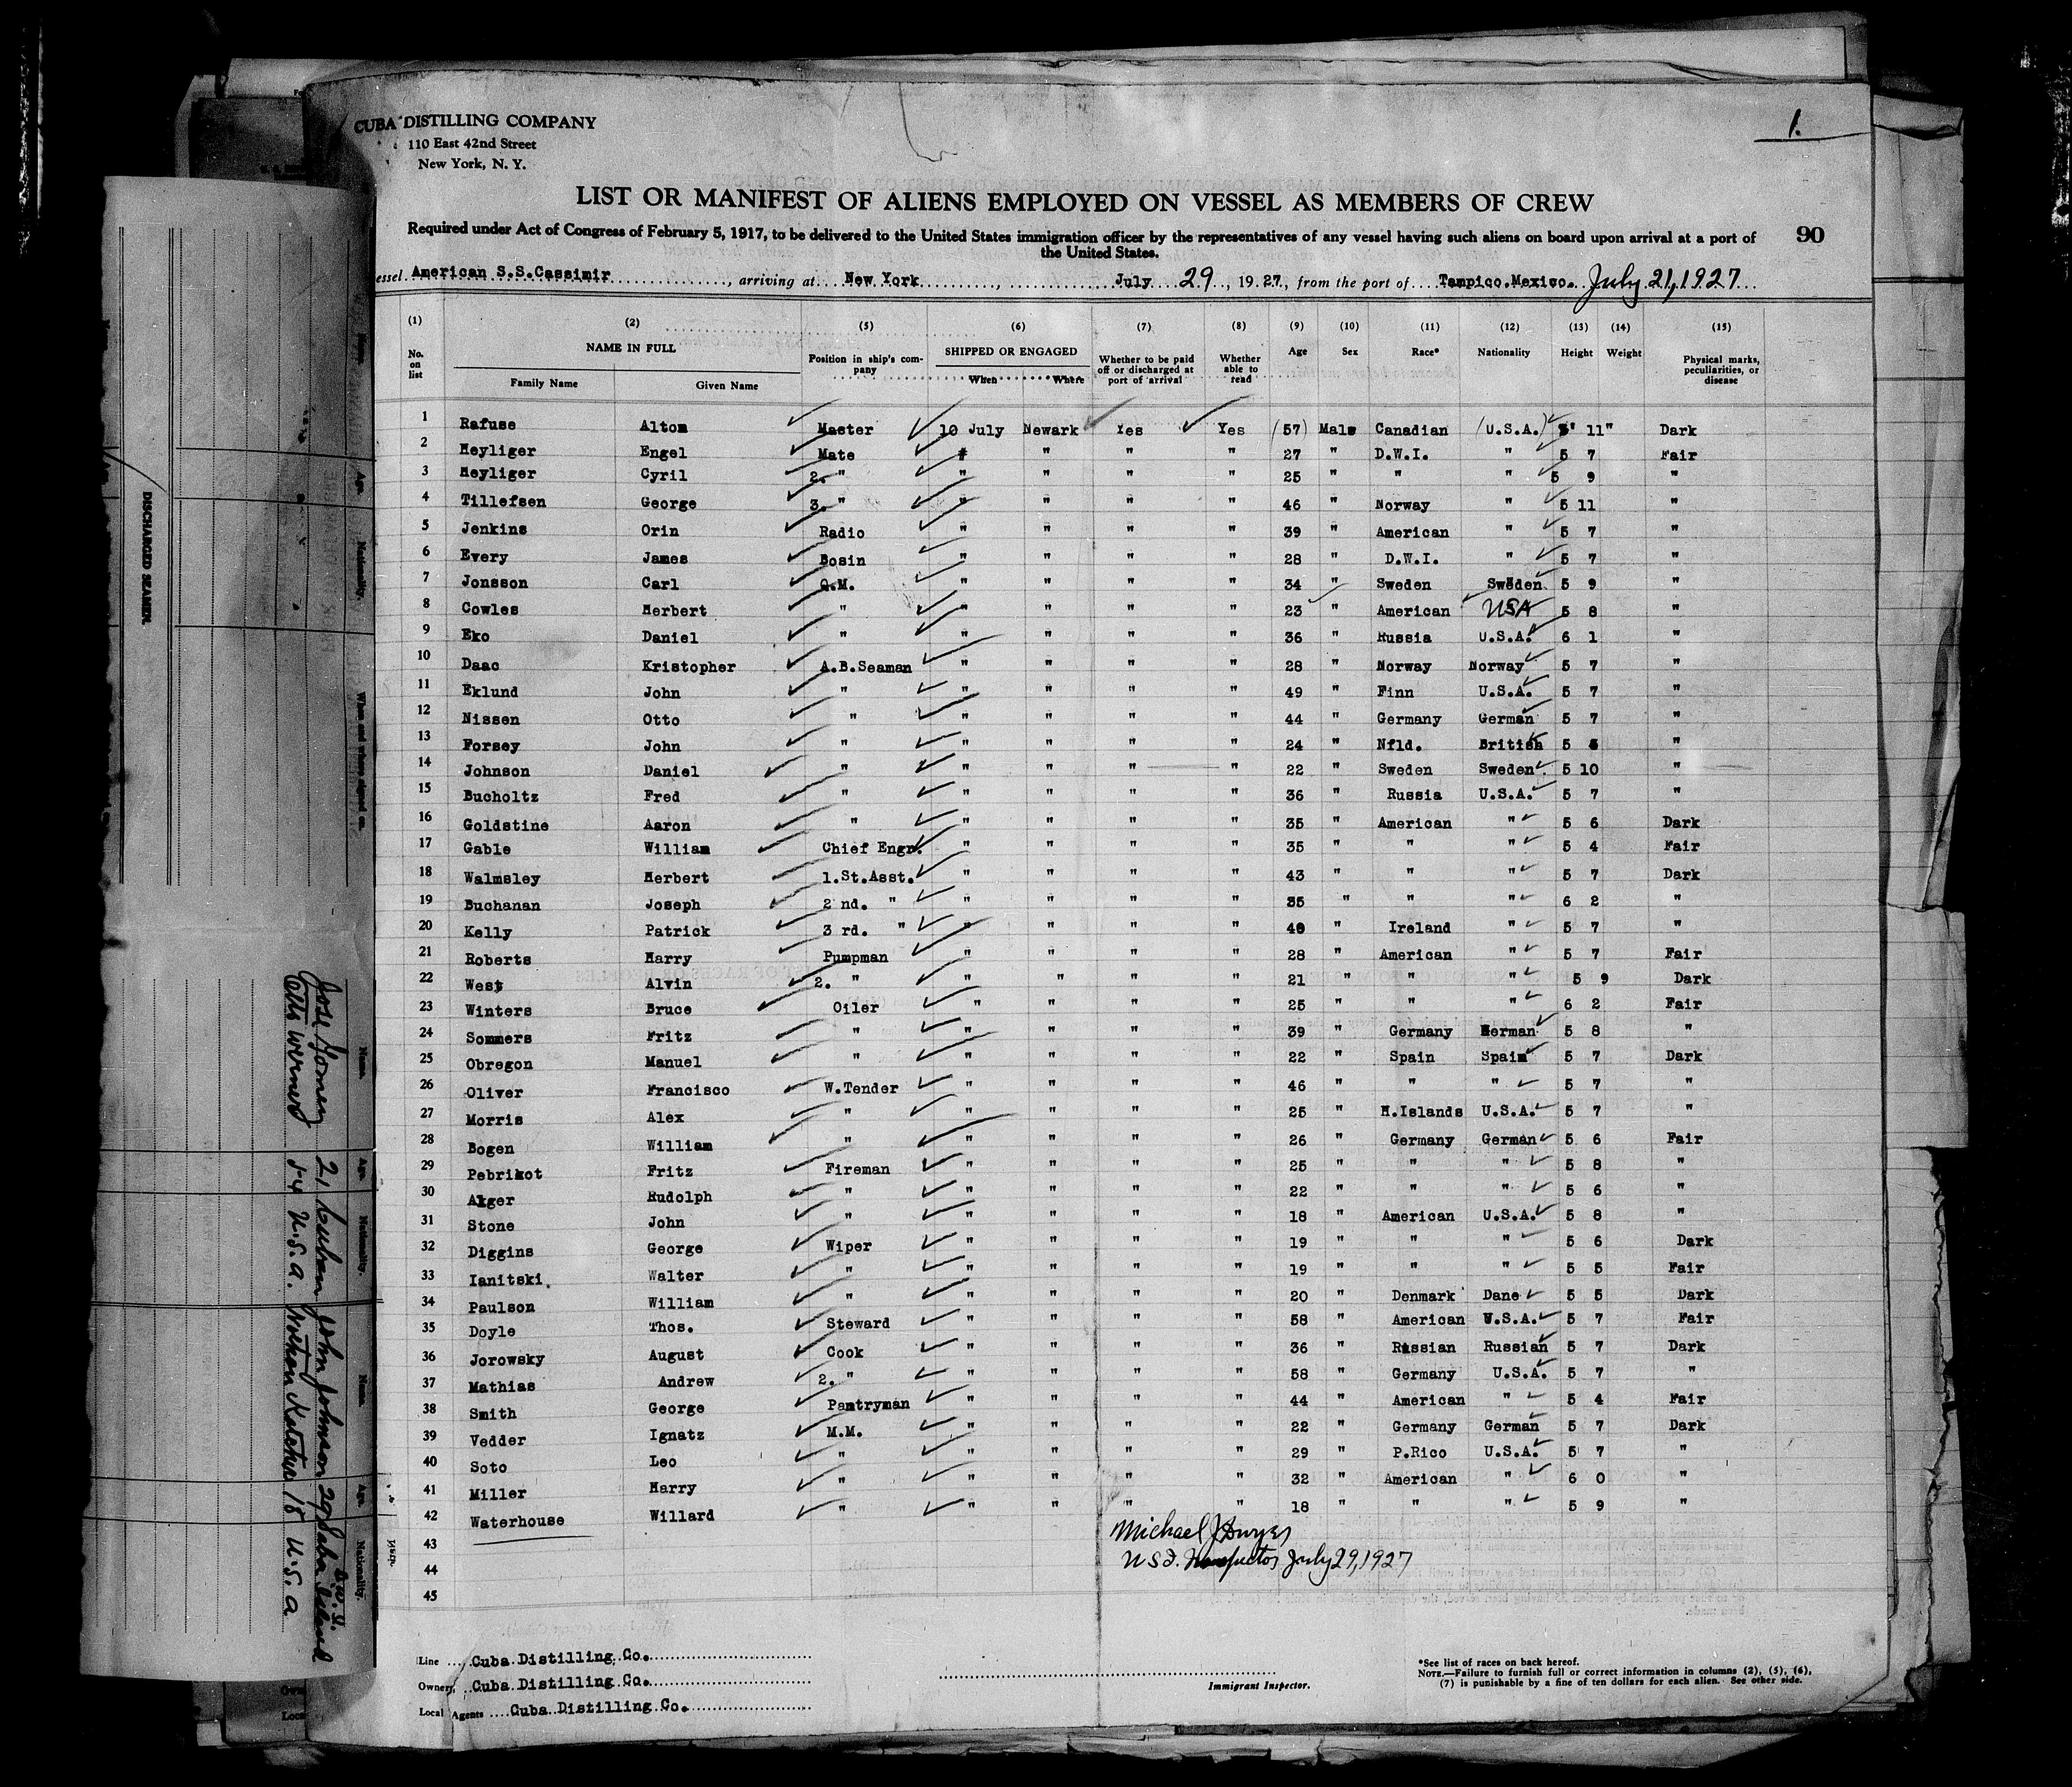 CUBA DISTILLING COMPANY
110 East 42nd Street
New York, N. Y.
1.
LIST OR MANIFEST OF ALIENS EMPLOYED ON VESSEL AS MEMBERS OF CREW
Required under Act of Congress of February 5, 1917, to be delivered to the United States immigration officer by the representatives of any vessel having such aliens on board upon arrival at a port of
the United States.
90
essel American S.S.Cassimir, arriving at New York, July 29, 1927, from the port of Tampico.Mexico. July 21, 1927
(1) (2) (5) (6) (7) (8) (9) (10) (11) (12) (13) (14) (15)
No. on list NAME IN FULL Family Name Given Name Position in ship's company SHIPPED OR ENGAGED When Where Whether to be paid off or discharged at port of arrival Whether able to read Age Sex Race* Nationality Height Weight Physical marks, peculiarities, or disease
1 Rafuse Alton Master 10 July Newark Yes Yes (57) Male Canadian (U.S.A.) 5' 11" Dark
2 Heyliger Engel Mate " " " " 27 " D.W.I. " 5 7 Fair
3 Heyliger Cyril 2. " " " " " 25 " " " 5 9 "
4 Tillefsen George 3. " " " " " 46 " Norway " 5 11 "
5 Jenkins Orin Radio " " " " 39 " American " 5 7 "
6 Every James Bosin " " " " 28 " D.W.I. " 5 7 "
7 Jonsson Carl Q.M. " " " " 34 " Sweden Sweden 5 9 "
8 Cowles Herbert " " " " " 23 " American USA 5 8 "
9 Eko Daniel " " " " " 36 " Russia U.S.A. 6 1 "
10 Daac Kristopher A.B.Seaman " " " " 28 " Norway Norway 5 7 "
11 Eklund John " " " " " 49 " Finn U.S.A. 5 7 "
12 Nissen Otto " " " " " 44 " Germany German 5 7 "
13 Forsey John " " " " " 24 " Nfld. British 5 "
14 Johnson Daniel " " " " " 22 " Sweden Sweden 5 10 "
15 Bucholtz Fred " " " " " 36 " Russia U.S.A. 5 7 "
16 Goldstine Aaron " " " " " 35 " American " 5 6 Dark
17 Gable William Chief Engr. " " " " 35 " " " 5 4 Fair
18 Walmsley Herbert 1.St.Asst. " " " " 43 " " " 5 7 Dark
19 Buchanan Joseph 2 nd. " " " " " 35 " " " 6 2 "
20 Kelly Patrick 3 rd. " " " " " 40 " Ireland " 5 7 "
21 Roberts Harry Pumpman " " " " 28 " American " 5 7 Fair
22 West Alvin 2. " " " " " 21 " " " 5 9 Dark
23 Winters Bruce Oiler " " " " 25 " " " 6 2 Fair
24 Sommers Fritz " " " " " 39 " Germany German 5 8 "
25 Obregon Manuel " " " " " 22 " Spain Spain 5 7 Dark
26 Oliver Francisco W.Tender " " " " 46 " " " 5 7 "
27 Morris Alex " " " " " 25 " H.Islands U.S.A. 5 7 "
28 Bogen William " " " " " 26 " Germany German 5 6 Fair
29 Pebrikot Fritz Fireman " " " " 25 " " " 5 8 "
30 Alger Rudolph " " " " " 22 " " " 5 6 "
31 Stone John " " " " " 18 " American U.S.A. 5 8 "
32 Diggins George Wiper " " " " 19 " " " 5 6 Dark
33 Ianitski. Walter " " " " " 19 " " " 5 5 Fair
34 Paulson William " " " " " 20 " Denmark Dane 5 5 Dark
35 Doyle Thos. Steward " " " " 58 " American U.S.A. 5 7 Fair
36 Jorowsky August Cook " " " " 36 " Russian Russian 5 7 Dark
37 Mathias Andrew 2. " " " " " 58 " Germany U.S.A. 5 7 "
38 Smith George Pantryman " " " " 44 " American " 5 4 Fair
39 Vedder Ignatz M.M. " " " " 22 " Germany German 5 7 Dark
40 Soto Leo " " " " " 29 " P.Rico U.S.A. 5 7 "
41 Miller Harry " " " " " 32 " American " 6 0 "
42 Waterhouse Willard " " " " " 18 " " " 5 9 "
43
44
45
Michael J Dwyer
U S I. Inspector July 29, 1927
Line Cuba Distilling Co.
Owners, Cuba Distilling Co.
Local Agents Cuba Distilling Co.
Immigrant Inspector.
*See list of races on back hereof.
NOTE.—Failure to furnish full or correct information in columns (2), (5), (6),
(7) is punishable by a fine of ten dollars for each alien. See other side.
DISCHARGED SEAMEN.
Name. Age. Nationality. When and where signed on.
Name. Age. Nationality. Name. Age. Nationality.
Jose Gomez 21 Cuban John Johnson 29 Saba Island D.W.I.
Otto Werner 54 U.S.A. Nathan 18 U.S.A